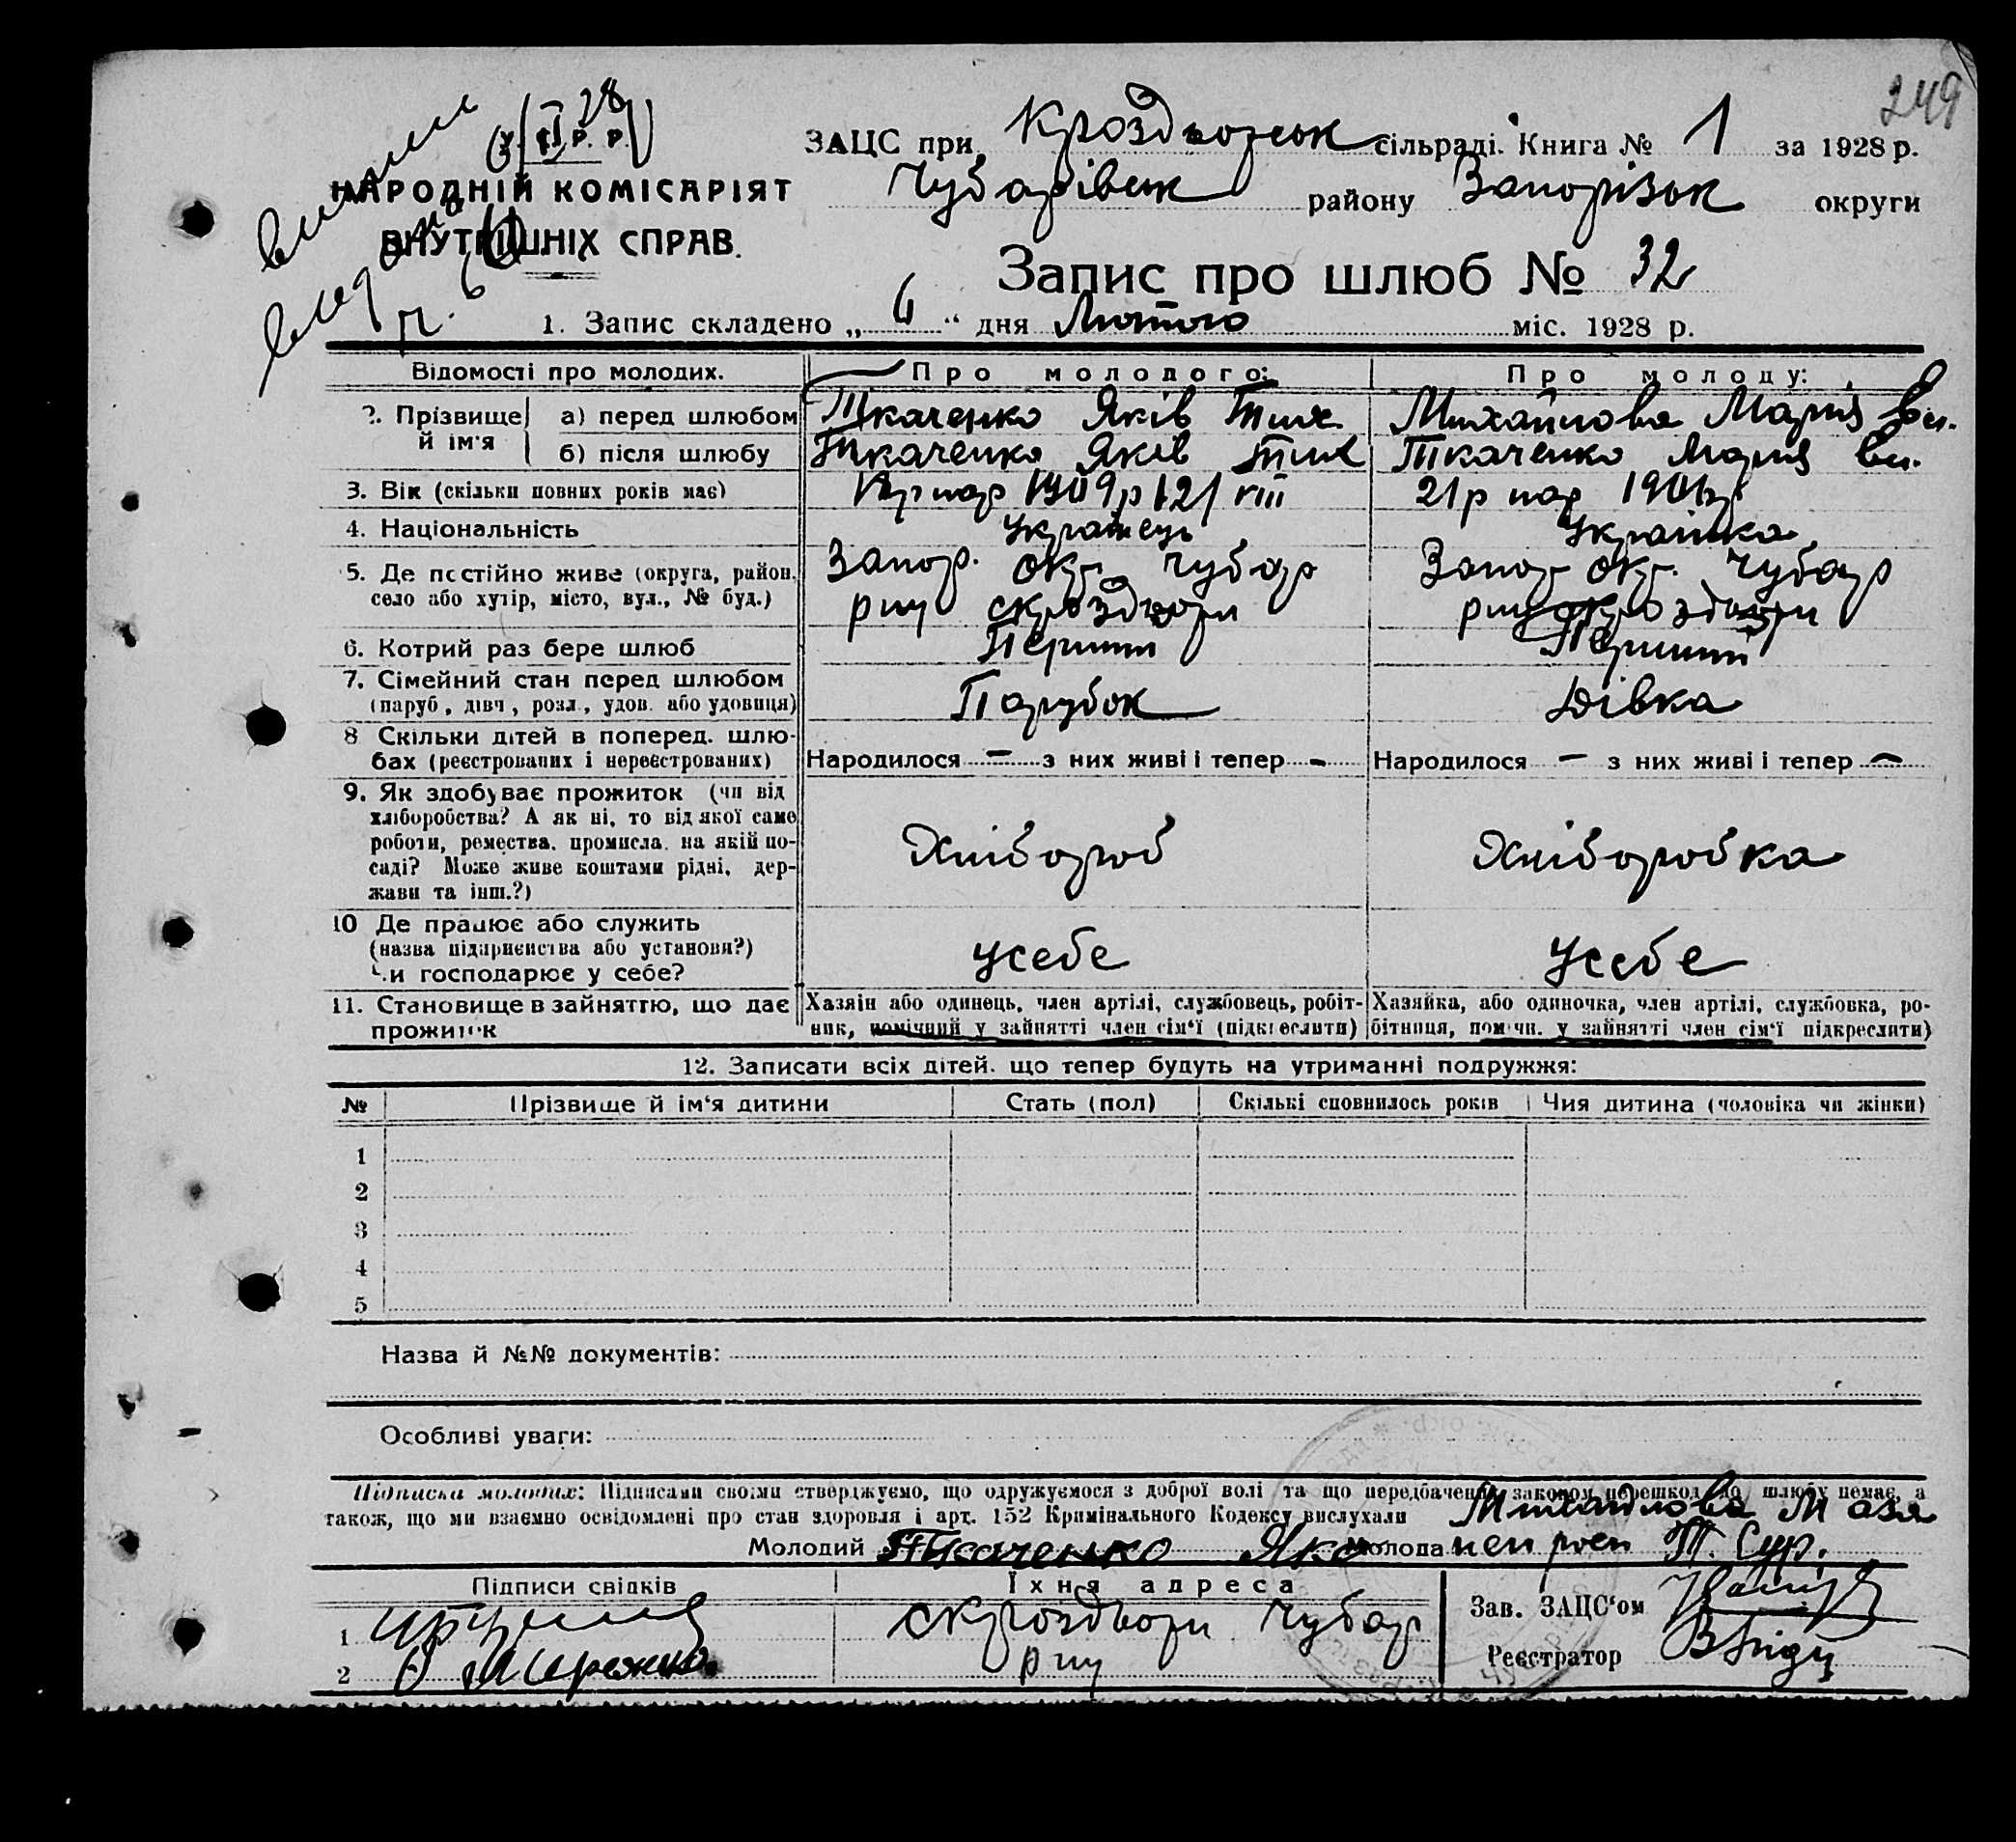 249
У. С. Р. Р.
НАРОДНІЙ КОМІСАРІЯТ
ВНУТРІШНІХ СПРАВ.
ЗАЦС при Кроздворськ сільраді. Книга № 1 за 1928 р.
Чубарівськ району Запорізьк округи
Запис про шлюб № 32
1. Запис складено „ 6 “ дня Лютого міс. 1928 р.
Відомості про молодих. Про молодого: Про молоду:
2. Прізвище й ім'я а) перед шлюбом Ткаченко Яків Тих. Михайлова Мария
б) після шлюбу Ткаченко Яків Тих Ткаченко Мария
3. Вік (скільки повних років має) нар 1909р 21 VIII 21р нар
4. Національність Українець Українка
5. Де постійно живе (округа, район, Запор. окр. Чубар Запор окр. Чубар
село або хутір, місто, вул., № буд.) рну скроздвори рну
6. Котрий раз бере шлюб Перший Перший
7. Сімейний стан перед шлюбом Парубок Дівка
(паруб., дівч., розл., удов. або удовиця)
8 Скільки дітей в поперед. шлю-
бах (реєстрованих і нереєстрованих) Народилося — з них живі і тепер - Народилося — з них живі і тепер —
9. Як здобуває прожиток (чи від
хліборобства? А як ні, то від якої саме
роботи, ремества, промисла, на якій по- Хлібороб Хліборобка
саді? Може живе коштами рідні, дер-
жави та інш.?)
10 Де працює або служить
(назва підприємства або установи?) усебе Усебе
Чи господарює у себе?
11. Становище в зайняттю, що дає Хазяїн або одинець, член артілі, службовець, робіт- Хазяйка, або одиночка, член артілі, службовка, ро-
прожиток ник, помічний у зайнятті член сім'ї (підкреслити) бітниця, помічн. у зайнятті член сім'ї підкреслити)
12. Записати всіх дітей, що тепер будуть на утриманні подружжя:
№ Прізвище й ім'я дитини Стать (пол) Скількі сповнилось років Чия дитина (чоловіка чи жінки)
1
2
3
4
5
Назва й №№ документів:
Особливі уваги:
Підписка молодих: Підписами своїми стверджуємо, що одружуємося з доброї волі та що передбачених законом перешкод до шлюбу немає, а
також, що ми взаємно освідомлені про стан здоровля і арт. 152 Кримінального Кодексу вислухали Михайлова
Молодий Ткаченко Яко Молода
Підписи свідків Їхня адреса
1 скроздвори Чубар Зав. ЗАЦС'ом
2 рну Реєстратор